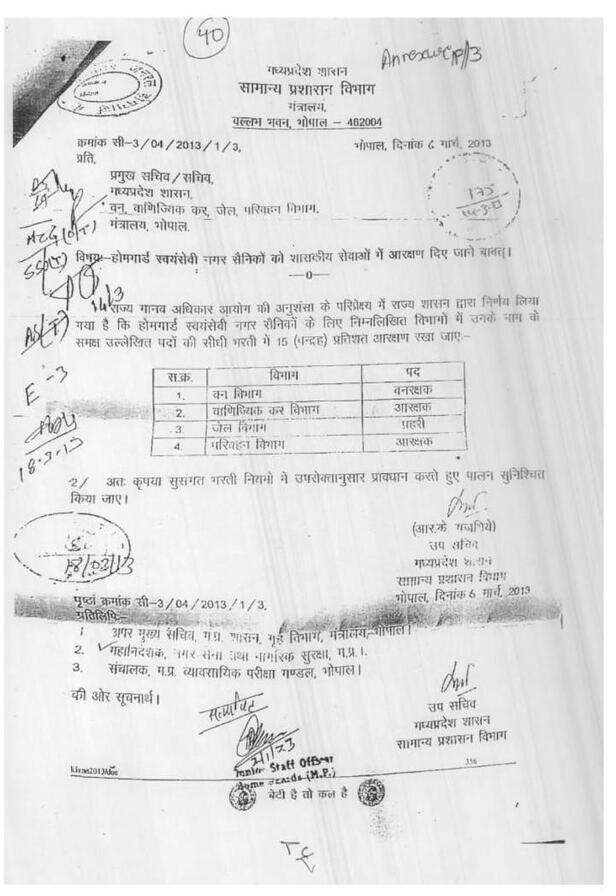 40
Annexure P/3
मध्यप्रदेश शासन
सामान्य प्रशासन विभाग
मंत्रालय,
वल्लभ भवन, भोपाल – 462004
क्रमांक सी-3/04/2013/1/3, भोपाल, दिनांक 6 मार्च, 2013
प्रति,
प्रमुख सचिव/सचिव,
मध्यप्रदेश शासन,
वन, वाणिज्यिक कर, जेल, परिवहन विभाग,
मंत्रालय, भोपाल.
175
विषयः–होमगार्ड स्वयंसेवी नगर सैनिकों को शासकीय सेवाओं में आरक्षण दिए जाने बाबत्।
—0—
राज्य मानव अधिकार आयोग की अनुशंसा के परिप्रेक्ष्य में राज्य शासन द्वारा निर्णय लिया
गया है कि होमगार्ड स्वयंसेवी नगर सैनिकों के लिए निम्नलिखित विभागों में उनके नाम के
समक्ष उल्लेखित पदों की सीधी भरती में 15 (पन्द्रह) प्रतिशत आरक्षण रखा जाएः–
स.क्र. विभाग पद
1. वन विभाग वनरक्षक
2. वाणिज्यिक कर विभाग आरक्षक
3 जेल विभाग प्रहरी
4. परिवहन विभाग आरक्षक
E-3
18-3-13
2/ अतः कृपया सुसंगत भरती नियमों में उपरोक्तानुसार प्रावधान करते हुए पालन सुनिश्चित
किया जाए।
(आर.के. गजभिये)
उप सचिव
मध्यप्रदेश शासन
सामान्य प्रशासन विभाग
18/03/13
पृष्ठां क्रमांक सी-3/04/2013/1/3, भोपाल, दिनांक 6 मार्च, 2013
प्रतिलिपिः–
1 अपर मुख्य सचिव, म.प्र. शासन, गृह विभाग, मंत्रालय, भोपाल।
2. महानिदेशक, नगर सेना तथा नागरिक सुरक्षा, म.प्र.।
3. संचालक, म.प्र. व्यावसायिक परीक्षा मण्डल, भोपाल।
की ओर सूचनार्थ।
उप सचिव
मध्यप्रदेश शासन
सामान्य प्रशासन विभाग
सत्यापित
Junior Staff Officer
Home Guards (M.P.)
356
बेटी है तो कल है